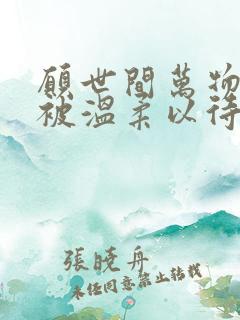 願世間萬物
被溫柔以待
張曉舟
未经同意禁止转载